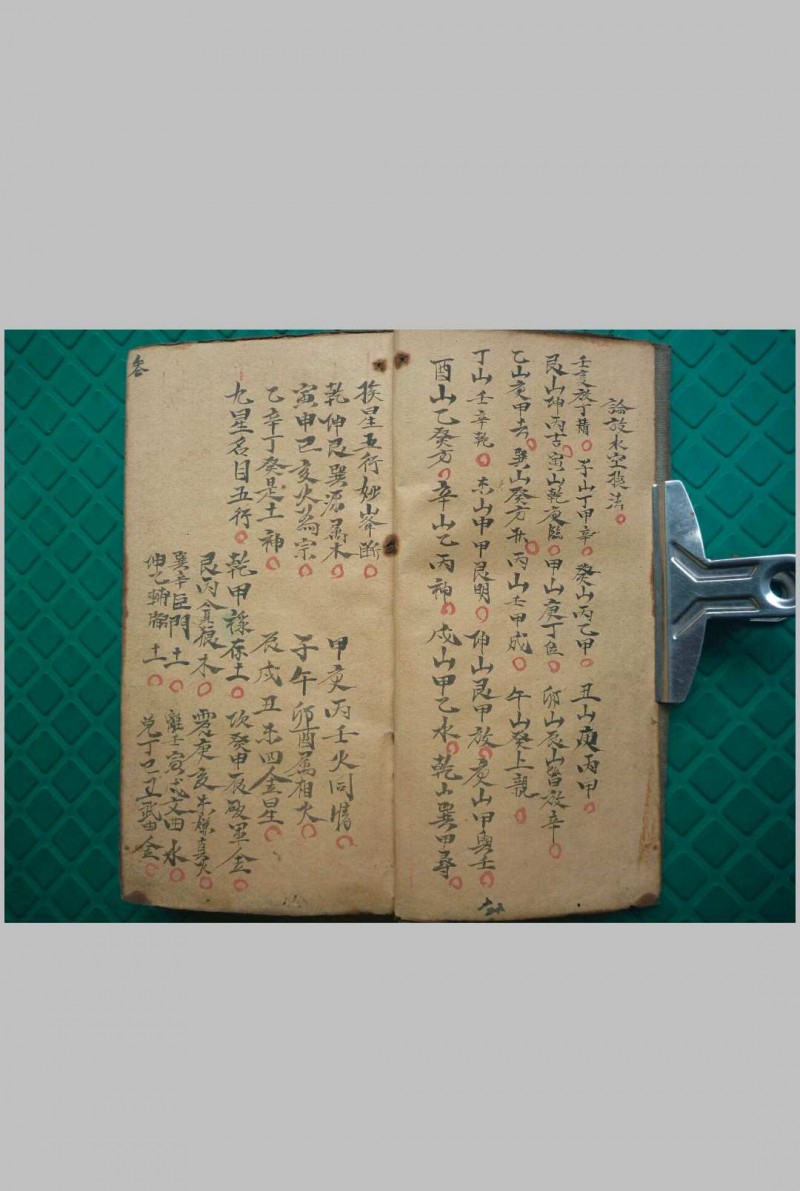 論放水空龍法
壬亥放丁精 子山丁甲辛 癸山丙乙甲 丑山庚丙甲
艮山坤丙吉 寅山乾庚臨 甲山庚丁位 卯山辰山皆放辛
乙山庚甲去 巽山癸方 丙山壬甲成 午山癸上親
丁山壬辛乾 未山申甲艮明 伸山艮甲放 庚山甲與壬
酉山乙癸方 辛山乙丙神 戍山甲乙水 乾山巽甲尋
挨星五行妙山峯斷
乾伸艮巽源属木 甲庚丙壬火同情
寅申巳亥火為宗 子午卯酉属相火
乙辛丁癸是土神 辰戍丑未四金星
九星名目五行 乾甲祿存土 坎癸申辰破軍金
艮丙貪狼木 震庚亥未亷貞火
巽辛巨門土 離壬寅戍文曲水
伸乙輔弼土 兌丁巳丑武曲金